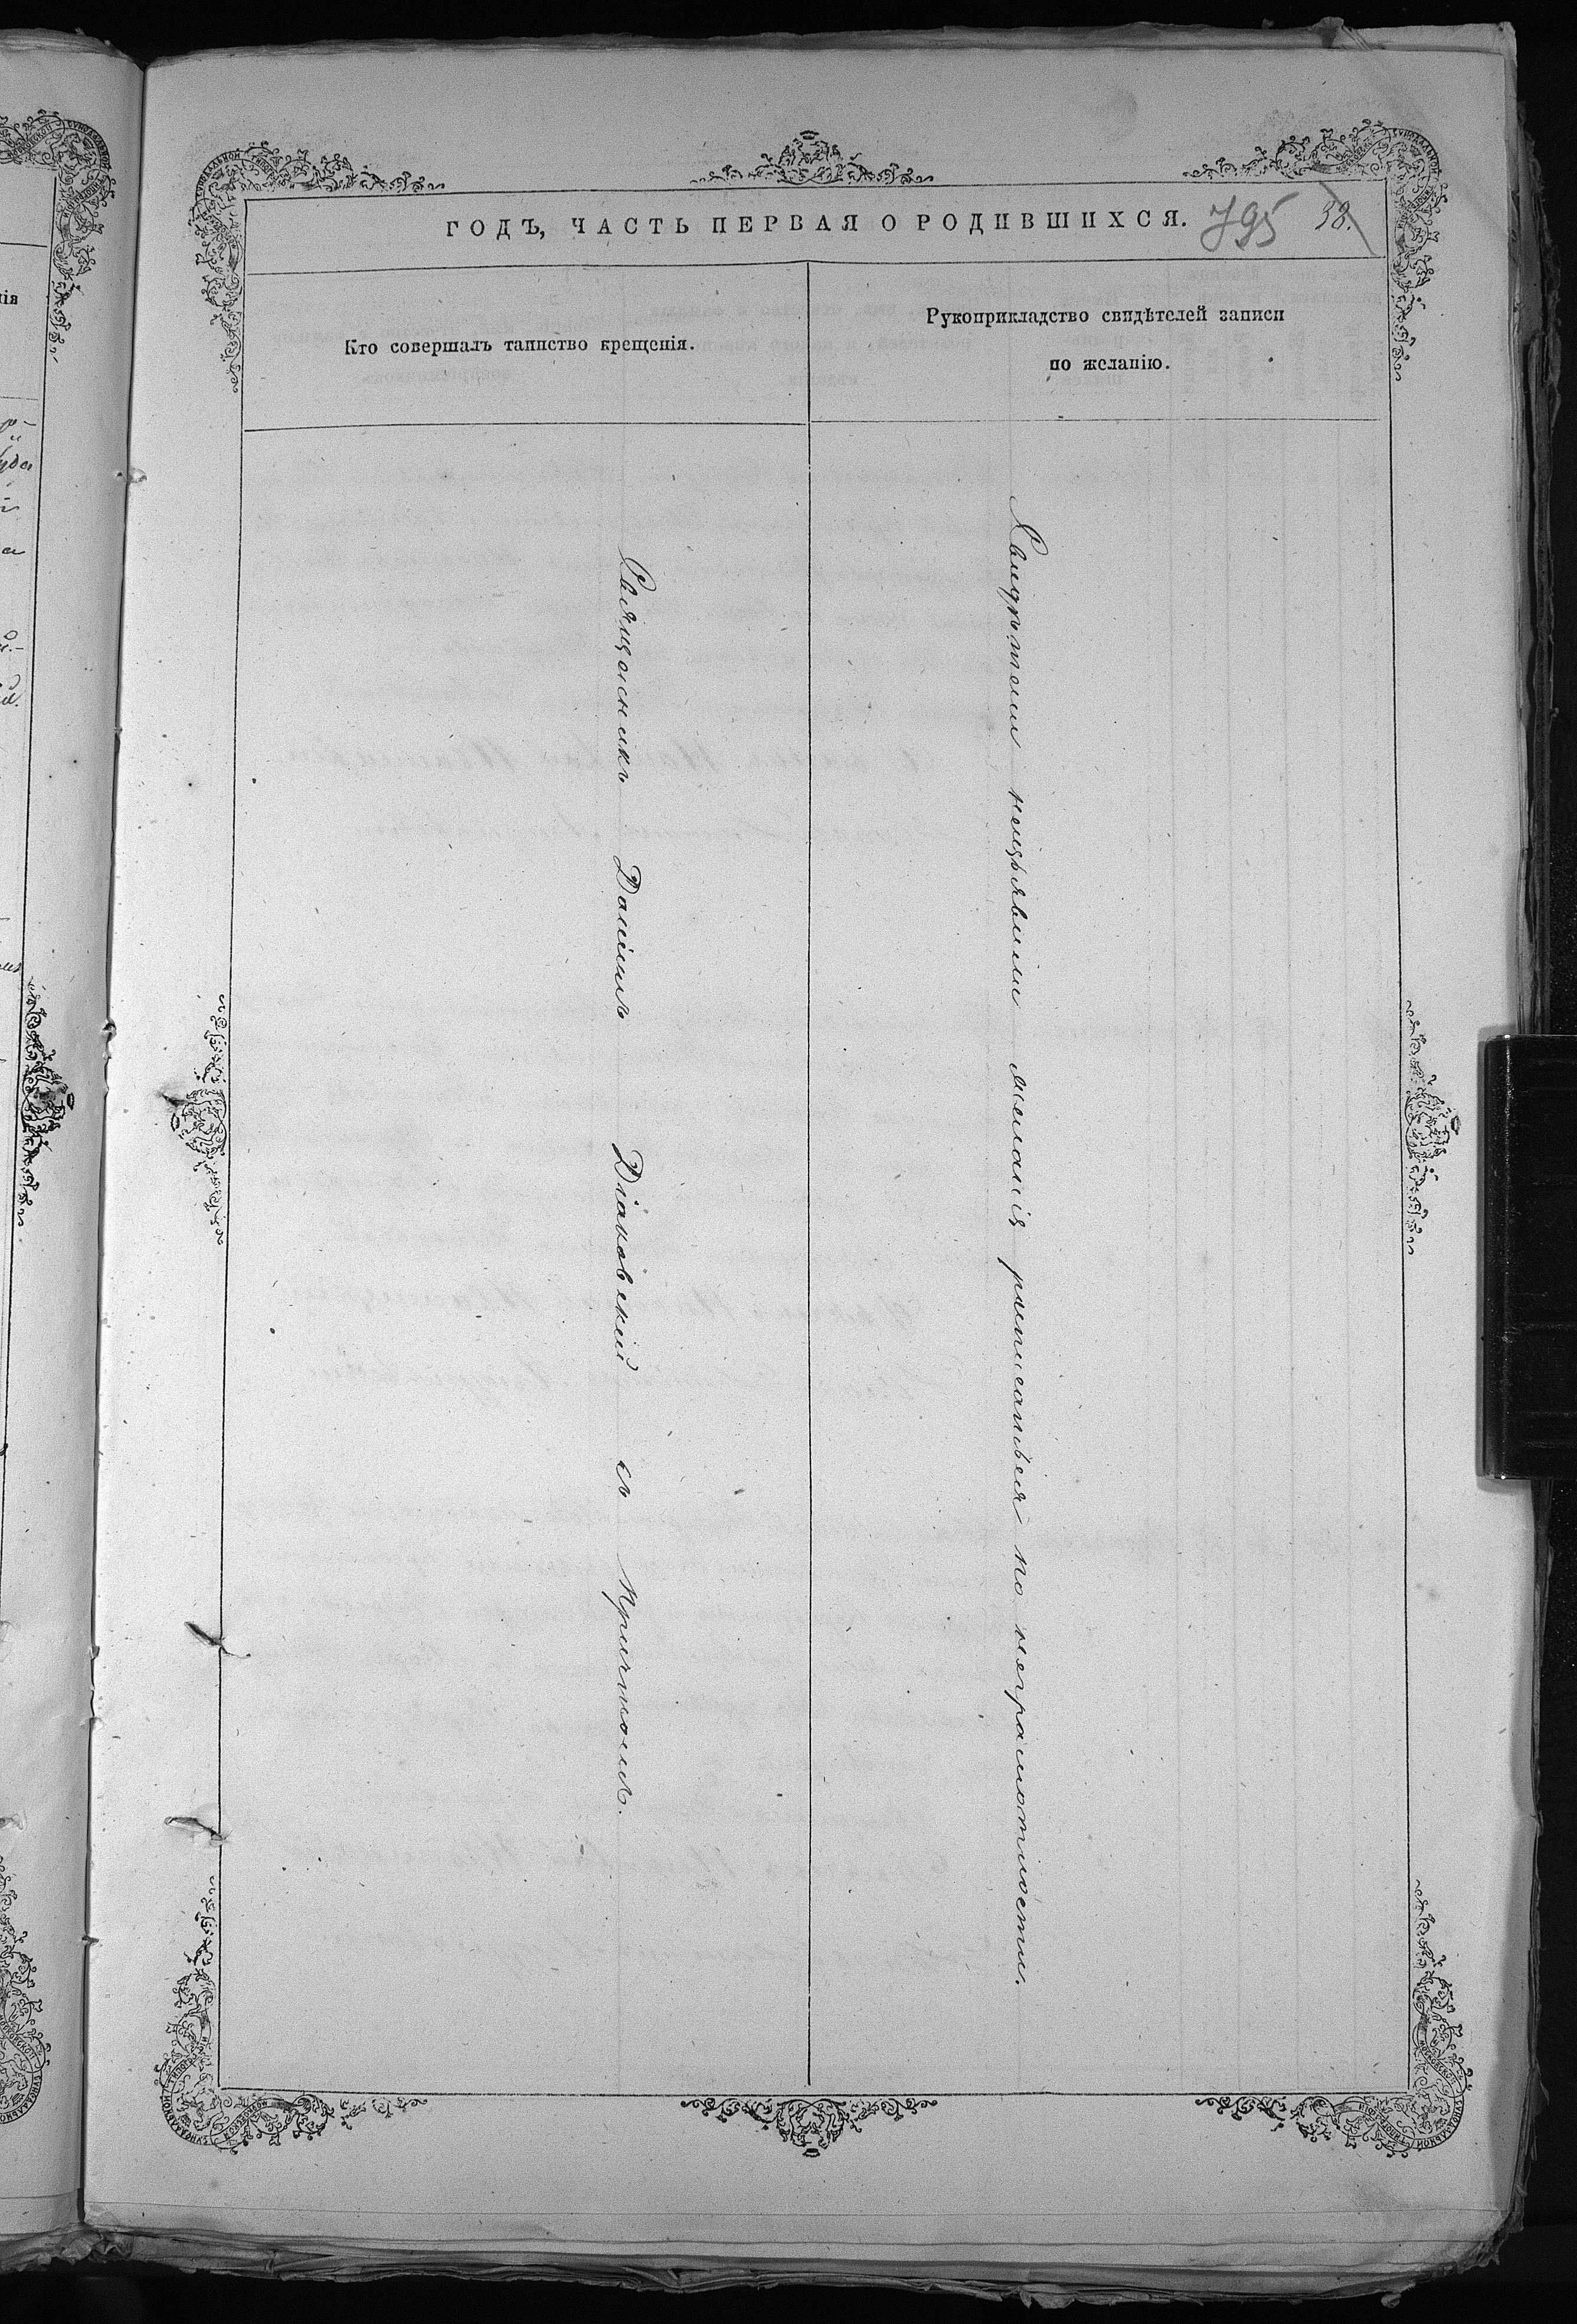 ГОДЪ, ЧАСТЬ ПЕРВАЯ О РОДИВШИХСЯ. 795 38.
Кто совершалъ таинство крещенія.
Рукоприкладство свидѣтелей записи
по желанію.
Священникъ Даніилъ Діаковскій съ Причтомъ.
Свидѣтели неизъявили желанія расписаться по неграмотности.